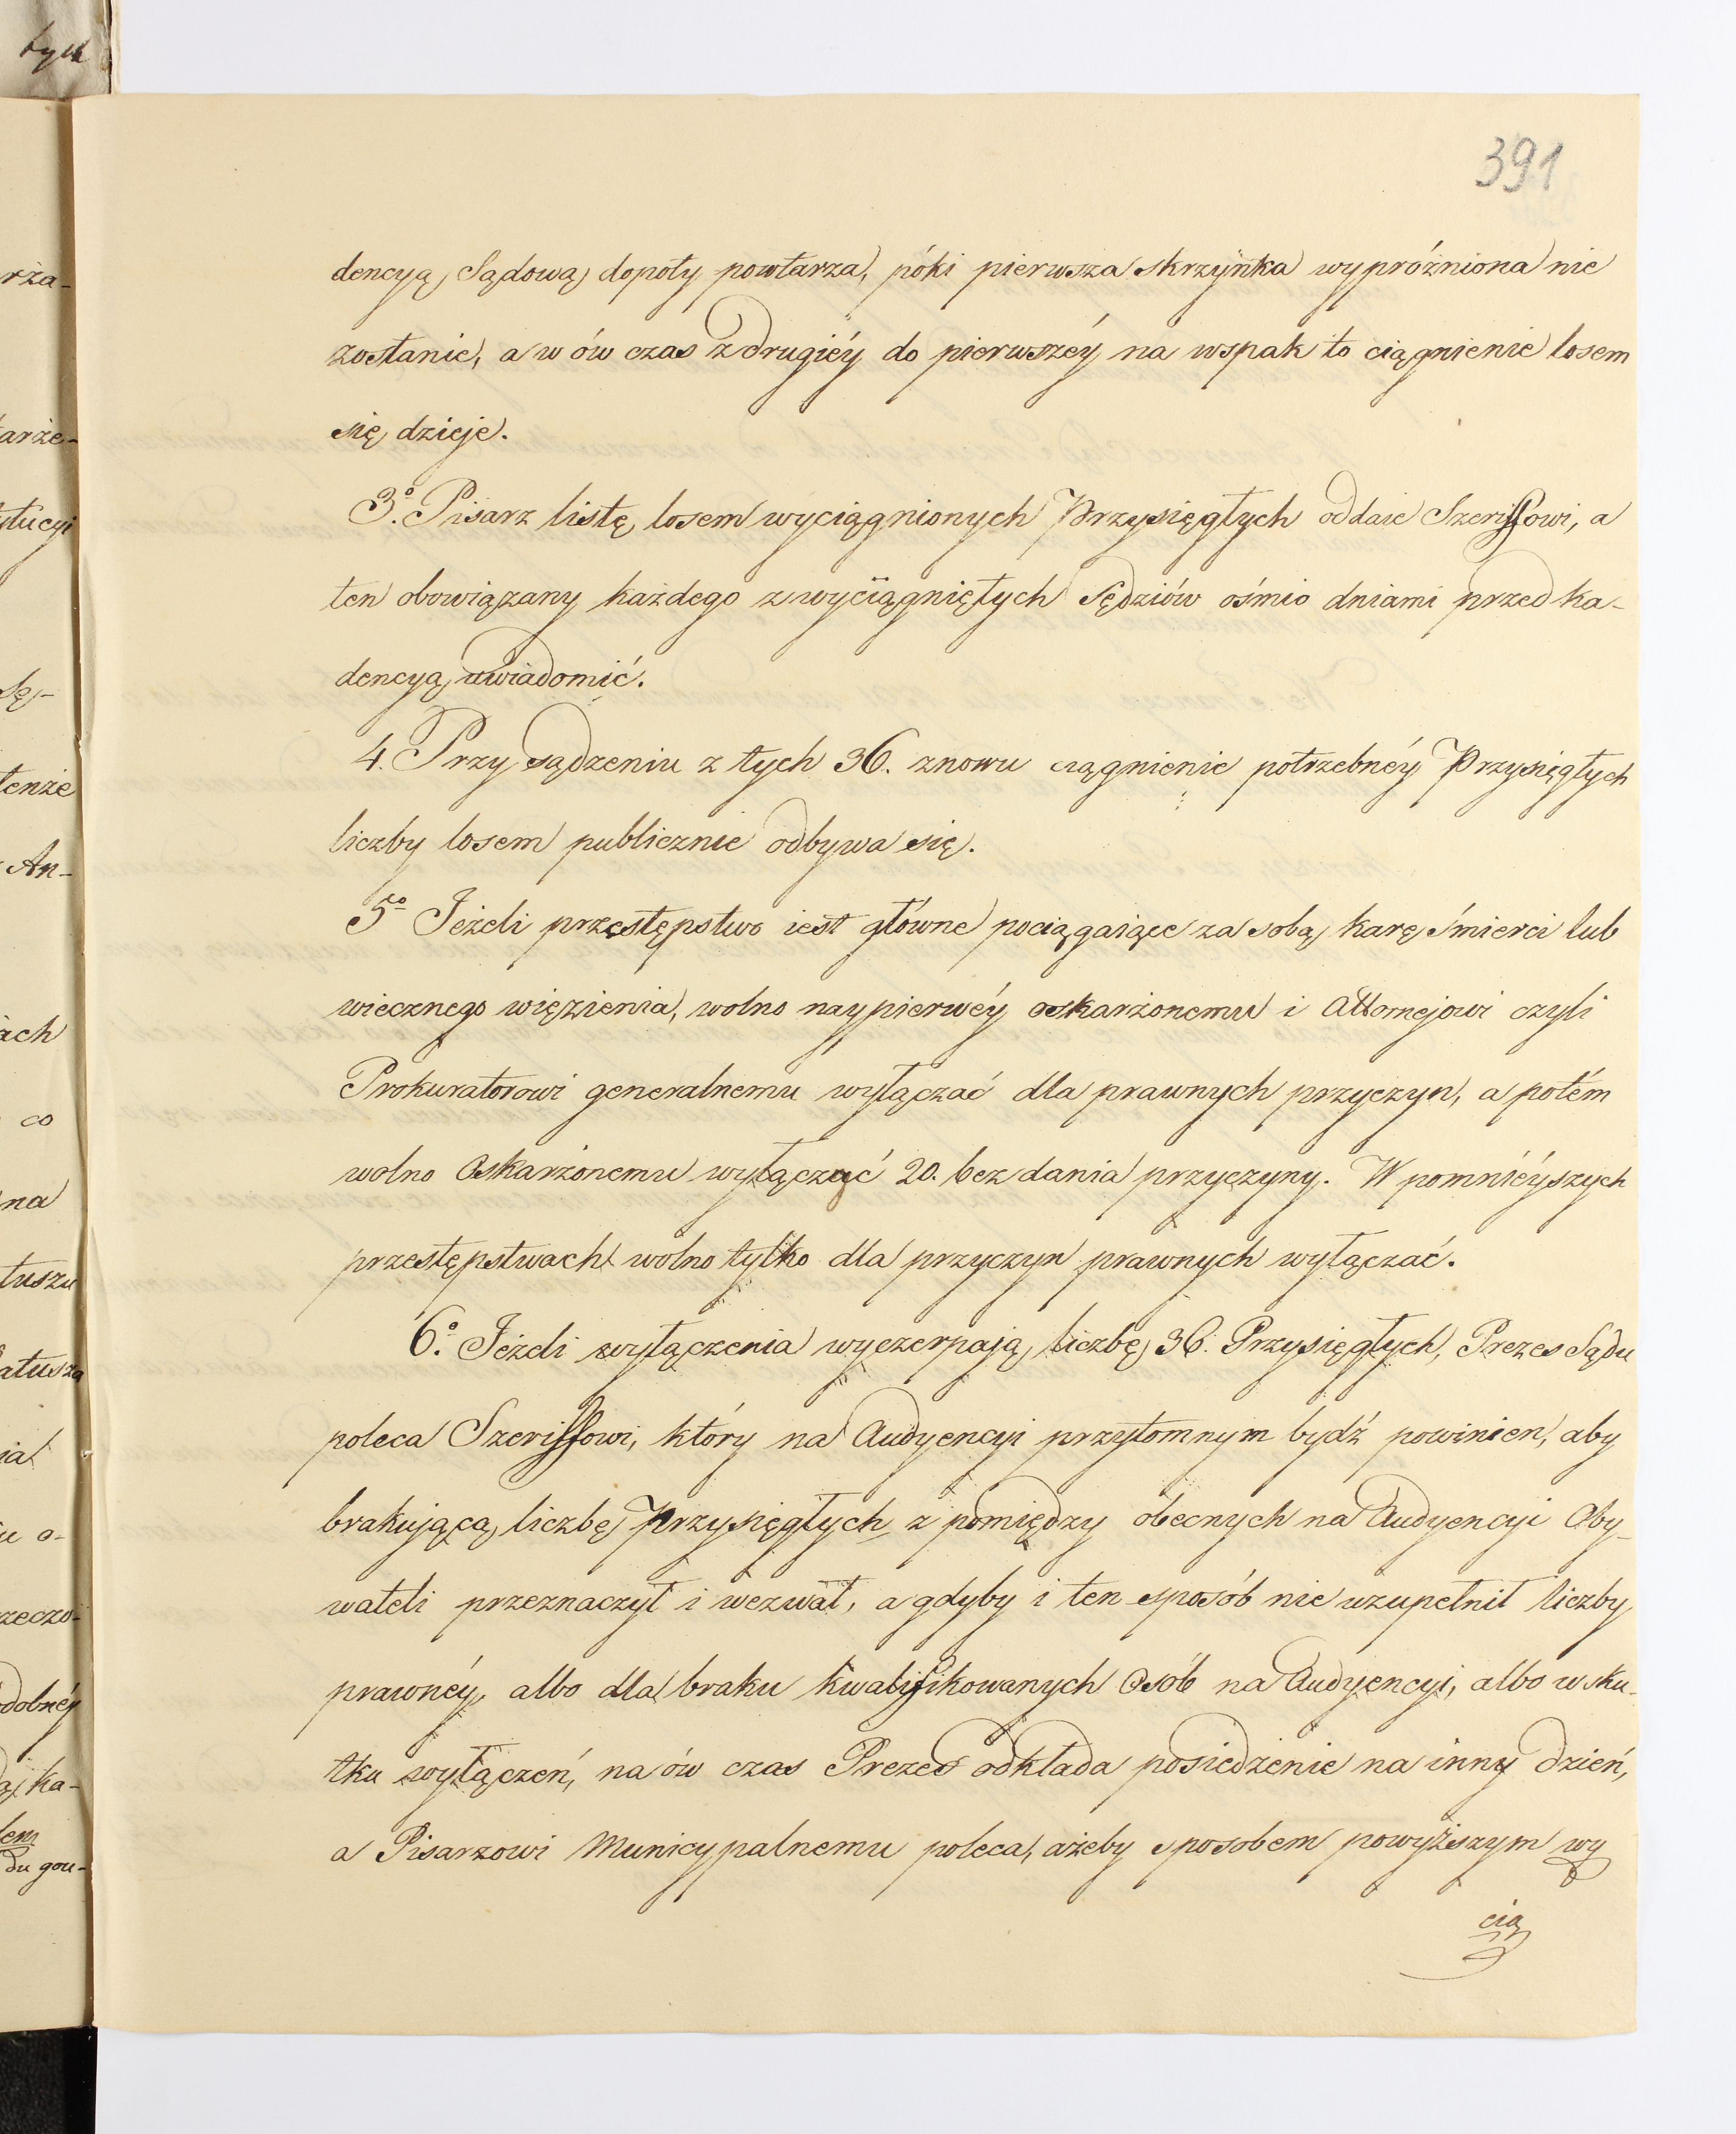 tych
391
dencyą Sądową dopoty powtarza, póki pierwsza skrzynka wypróżniona nie
zostanie, a w ów czas z drugiéy do pierwszéy na wspak to ciągnienie losem
się dzieje.
3o. Pisarz listę losem wyciągnionych Przysięgłych oddaie Szeriffowi, a
ten obowiązany każdego z wyciągniętych Sędziów ośmio dniami przed ka-
dencyą uwiadomić.
4. Przy sądzeniu z tych 36. znowu ciągnienie potrzebnéy Przysięgłych
liczby losem publicznie odbywa się.
5o Jeżeli przestępstwo iest główne pociągaiące za sobą karę śmierci lub
wiecznego więzienia, wolno naypierwéy oskarżonemu i Attornejowi czyli
Prokuratorowi generalnemu wyłączać dla prawnych przyczyn, a potém
wolno Oskarżonemu wyłączyć 20. bez dania przyczyny. W pomniéyszych
przestępstwach wolno tylko dla przyczyn prawnych wyłączać.
6o. Jeżeli wyłączenia wyczerpają liczbę 36. Przysięgłych, Prezes Sądu
poleca Szeriffowi, który na Audyencyi przytomnym bydź powinien, aby
brakującą liczbę Przysięgłych z pomiędzy obecnych na Audyencyi Oby-
wateli przeznaczył i wezwał, a gdyby i ten sposób nie uzupełnił liczby
prawnéy, albo dla braku kwalifikowanych Osób na Audyencyi, albo w sku-
tku wyłączeń, na ów czas Prezes odkłada posiedzenie na inny dzień,
a Pisarzowi Municypalnemu poleca, ażeby sposobem powyższym wy
cią